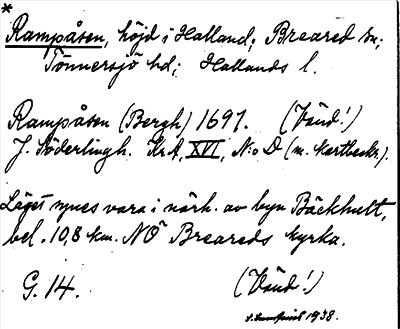 *
Rampåsen, höjd i Halland, Breared sn;
Tönnersjö hd; Hallands l.
Rampåsen (Bergh) 1697. (Vänd!)
J. Söderlingh. Kr.A, XVI, N:o D (m. kartbeskr.).
Läget synes vara i närh. av byn Bäckhult,
bel. 10,8 km. NÖ Breareds kyrka.
G. 14. (Vänd!)
1938.